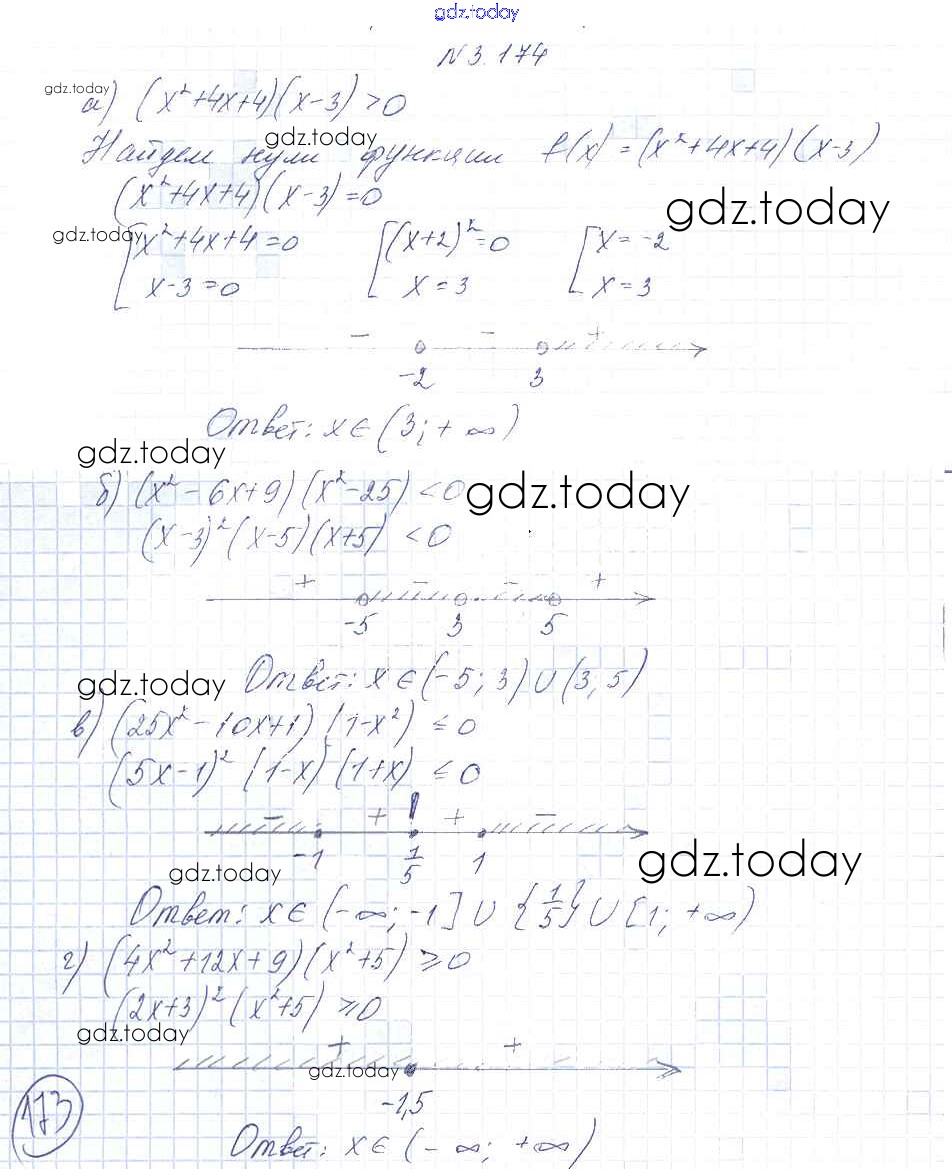 gdz.today
N 3.174
gdz.today
а) (x²+4x+4)(x-3)>0
gdz.today
Найдем нули функции f(x)=(x²+4x+4)(x-3)
(x²+4x+4)(x-3)=0
gdz.today
gdz.today
[x²+4x+4=0 [(x+2)²=0 [x=-2
x-3=0 x=3 x=3
- - +
-2 3
Ответ: x∈(3;+∞)
gdz.today
б) (x²-6x+9)(x²-25)<0
gdz.today
(x-3)²(x-5)(x+5)<0
+ - - +
-5 3 5
gdz.today
Ответ: x∈(-5;3)∪(3;5)
в) (25x²-10x+1)(1-x²)≤0
(5x-1)²(1-x)(1+x)≤0
- + ! + -
-1 1/5 1
gdz.today
gdz.today
Ответ: x∈(-∞;-1]∪{1/5}∪[1;+∞)
г) (4x²+12x+9)(x²+5)≥0
(2x+3)²(x²+5)≥0
gdz.today
+ +
gdz.today
-1,5
173
Ответ: x∈(-∞;+∞)